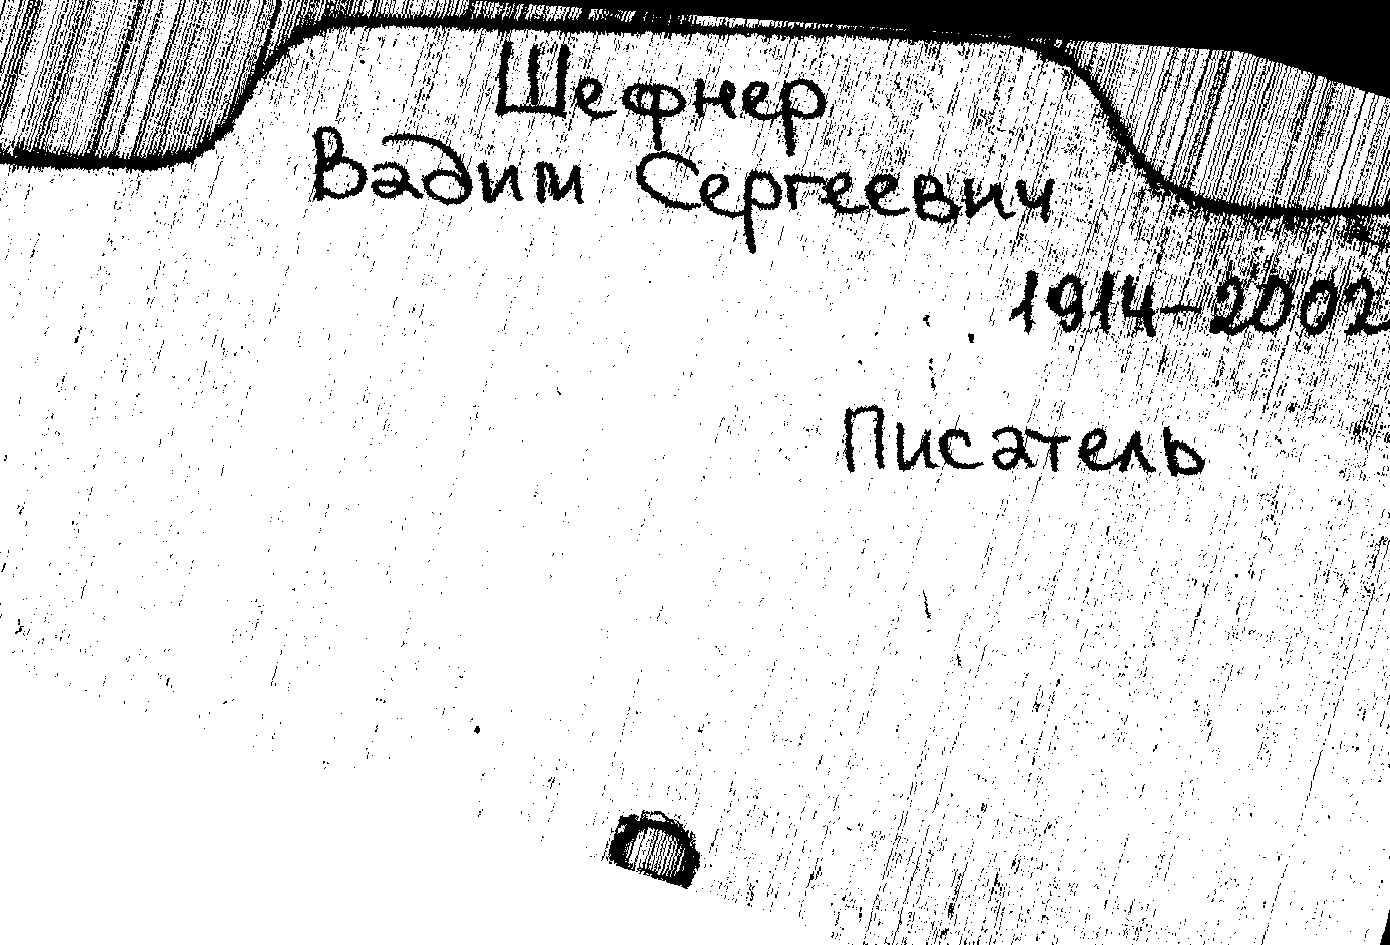 Шефнер
Вадим Сергеевич
1914-2002
Писатель